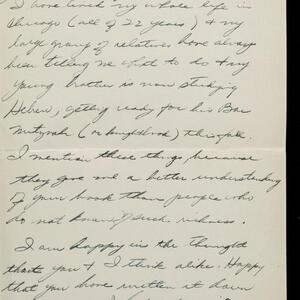 I have lived my whole life in
Chicago (all of 22 years) & my
large group of relatives have always
been telling me what to do & my
young brother is now studying
Hebrew, getting ready for his Bar
Mitzvah (or knighthood) this fall.
I mention these things because
they give me a better understanding
of your book than people who
do not know such richness.
I am happy in the thought
that you & I think alike. Happy
that you have written it down